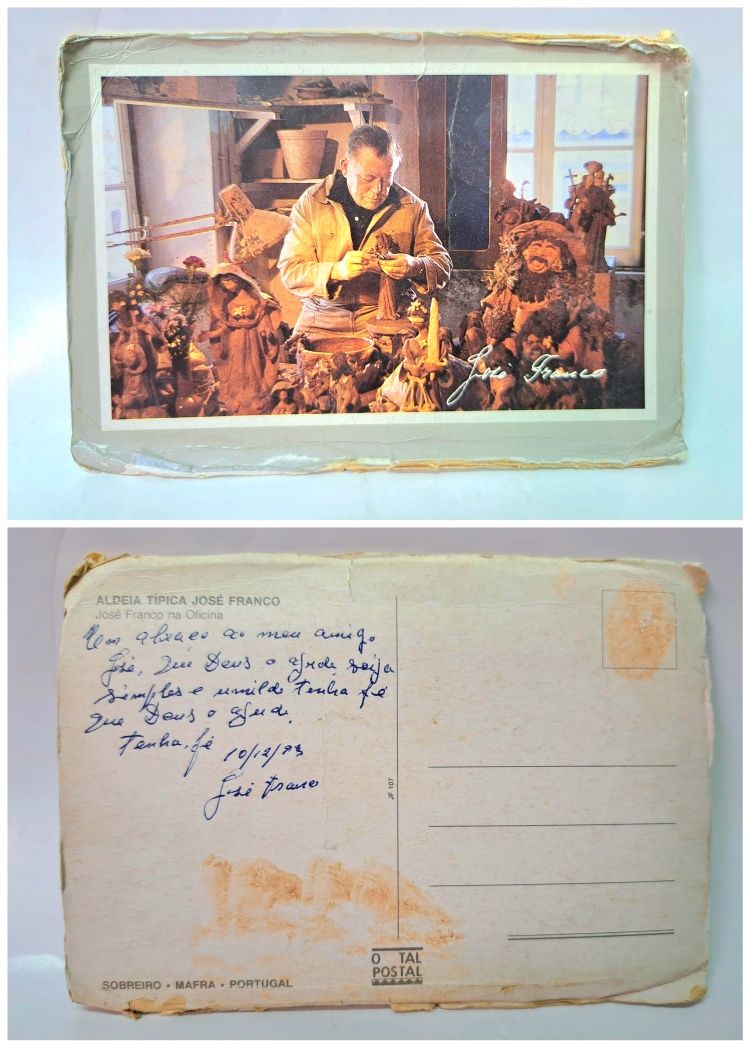 José Franco
ALDEIA TÍPICA JOSÉ FRANCO
José Franco na Oficina
Um abraço ao meu amigo
José, que Deus o ajude seija
simples e umilde tenha fé
que Deus o ajude.
tenha fé
10/12/93
José Franco
JF 107
O TAL
POSTAL
SOBREIRO • MAFRA • PORTUGAL